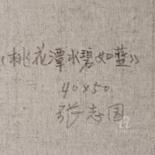 《桃花潭水碧如蓝》
40×50
张志国